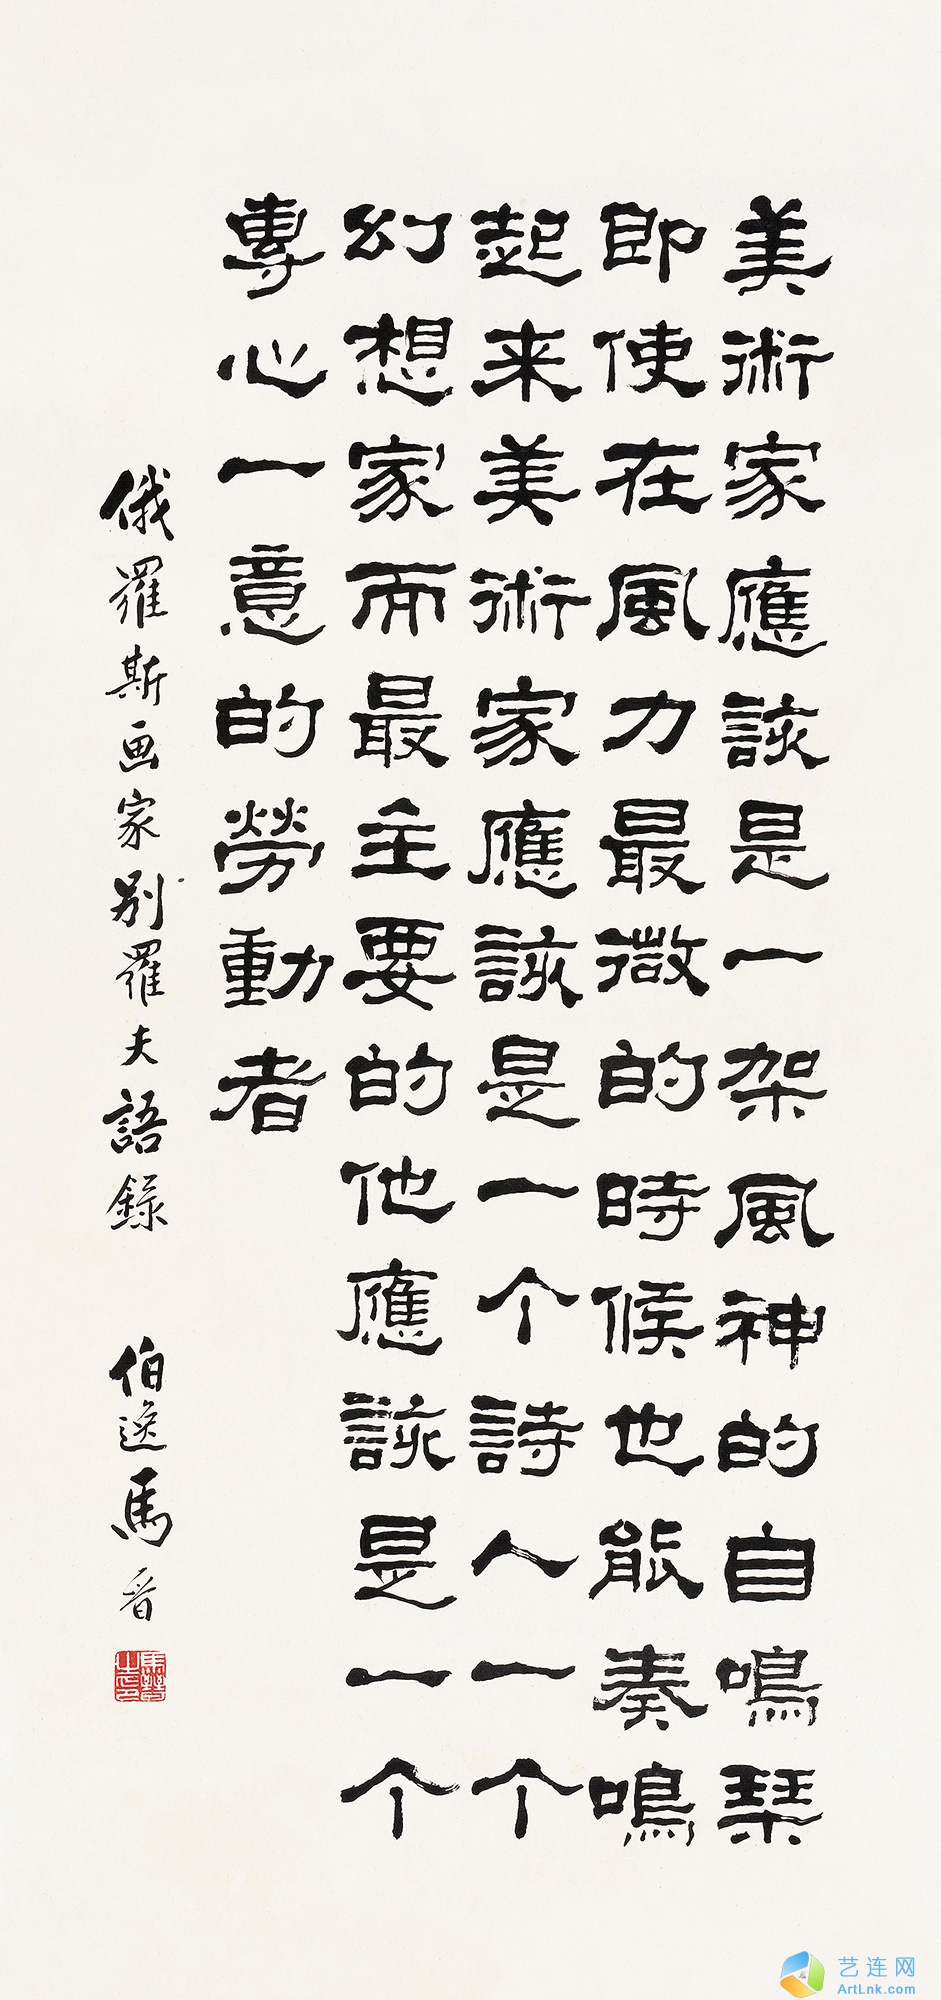 美術家應該是一架風神的自鳴琹
即使在風力最微的時候也能奏鳴
起来美術家應該是一个詩人一个
幻想家而最主要的他應該是一个
專心一意的勞動者
俄羅斯画家别羅夫語錄 伯逸馬晋
艺连网
ArtLnk.com